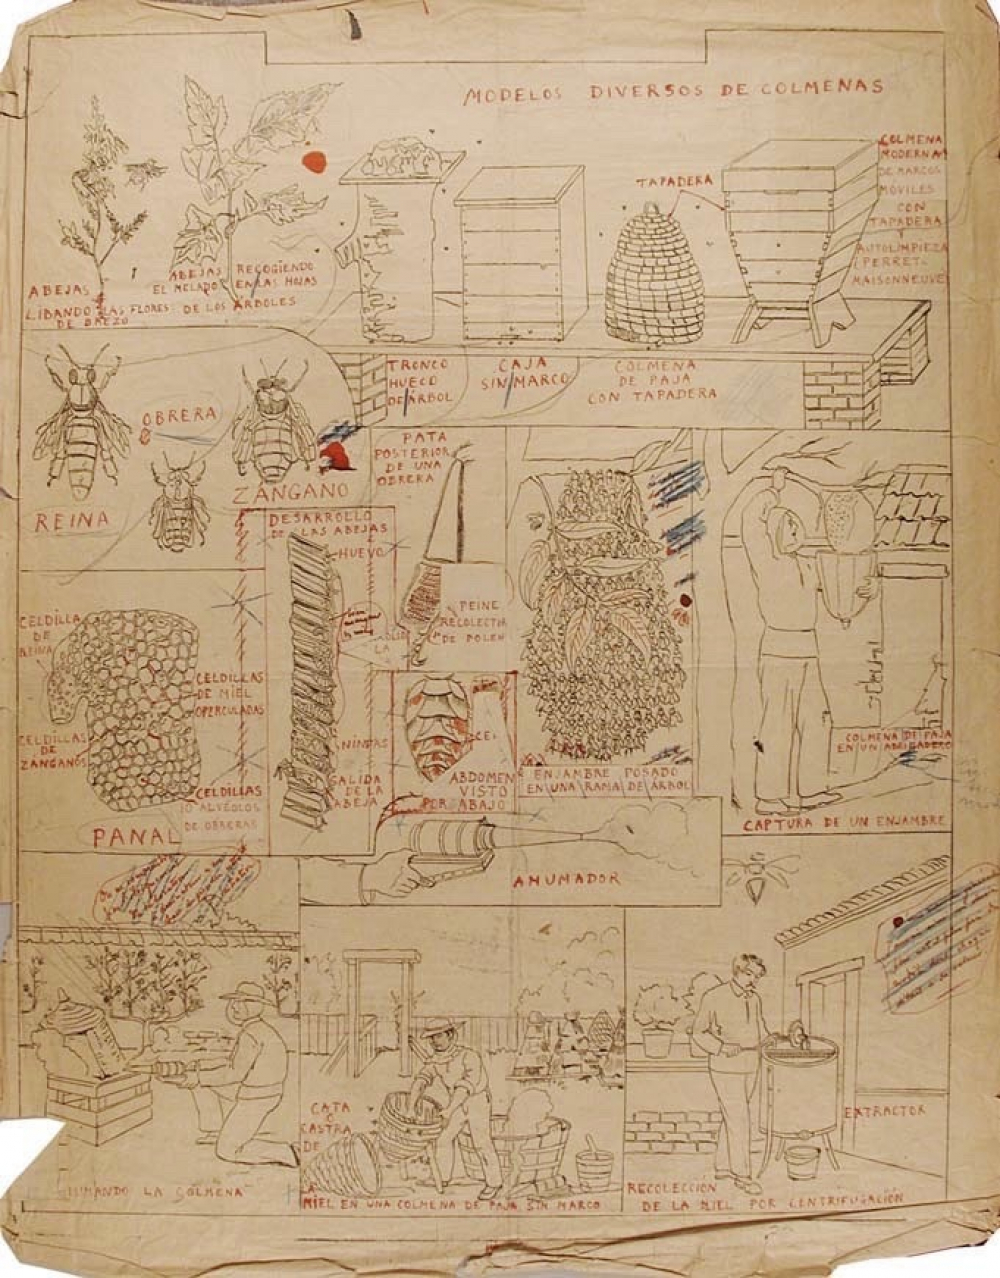 MODELOS DIVERSOS DE COLMENAS
COLMENA
MODERNA
DE MARCOS
MÓVILES
CON
TAPADERA
Y
AUTOLIMPIEZA
PERRET
MAISONNEUVE
TAPADERA
ABEJAS
LIBANDO LAS FLORES
DE BREZO
ABEJAS RECOGIENDO
EL MELADO EN LAS HOJAS
DE LOS ÁRBOLES
TRONCO
HUECO
DE ÁRBOL
CAJA
SIN MARCO
COLMENA
DE PAJA
CON TAPADERA
OBRERA
ZÁNGANO
REINA
PATA
POSTERIOR
DE UNA
OBRERA
DESARROLLO
DE LAS ABEJAS
HUEVO
PEINE
RECOLECTOR
DE POLEN
CELDILLA
DE
REINA
CELDILLAS
DE MIEL
OPERCULADAS
CELDILLAS
DE
ZANGANOS
CELDILLAS
O ALVÉOLOS
DE OBRERAS
PANAL
NINFAS
SALIDA
DE LA
ABEJA
ABDOMEN
VISTO
POR ABAJO
ENJAMBRE POSADO
EN UNA RAMA DE ÁRBOL
COLMENA DE PAJA
EN UN
CAPTURA DE UN ENJAMBRE
AHUMADOR
LA COLMENA
CATA
O
CASTRA
DE
LA
MIEL EN UNA COLMENA DE PAJA SIN MARCO
EXTRACTOR
RECOLECCIÓN
DE LA MIEL POR CENTRIFUGACIÓN